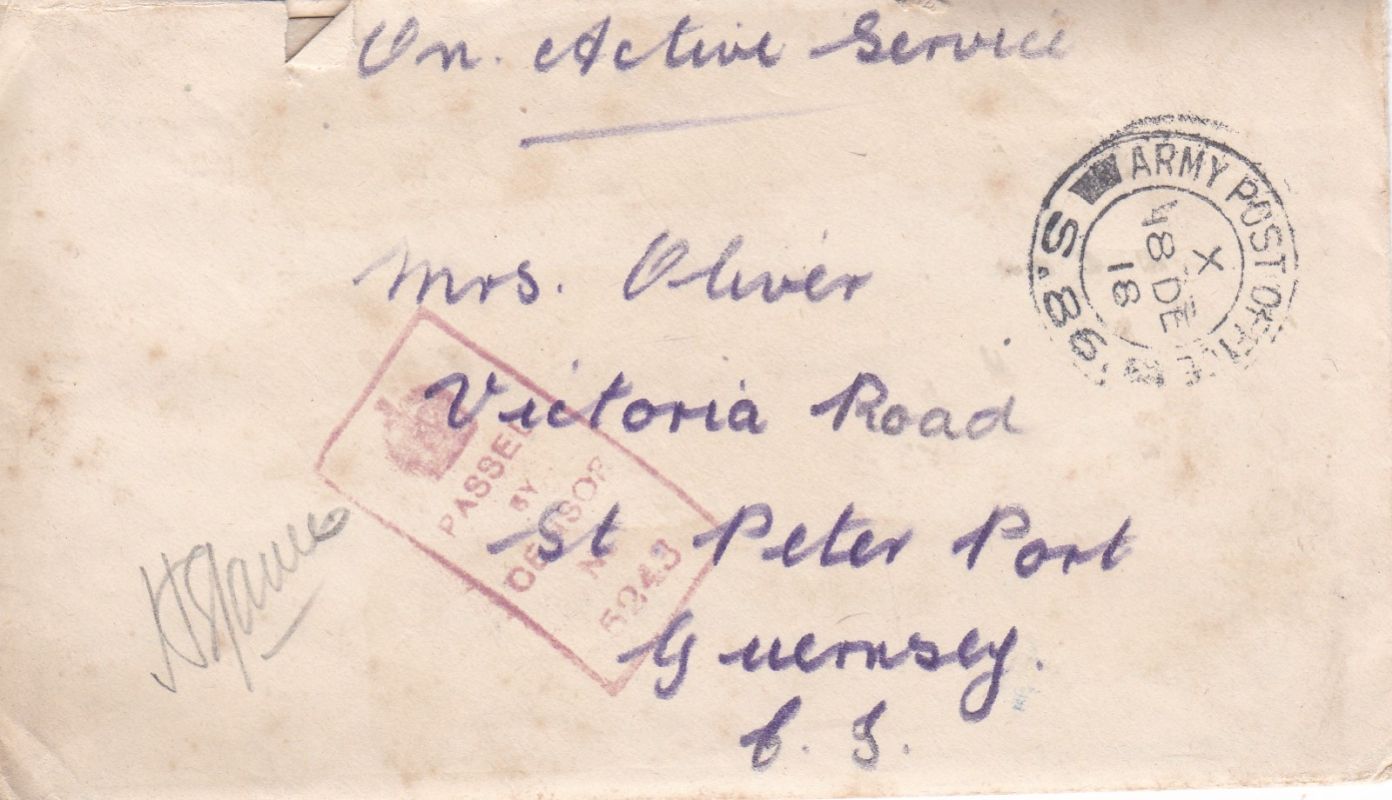 On. Active Service
ARMY POST OFFICE
S.86
X
18 DE
18
Mrs. Oliver
Victoria Road
St Peter Port
Guernsey.
C. I.
PASSED
BY
CENSOR
No
5243